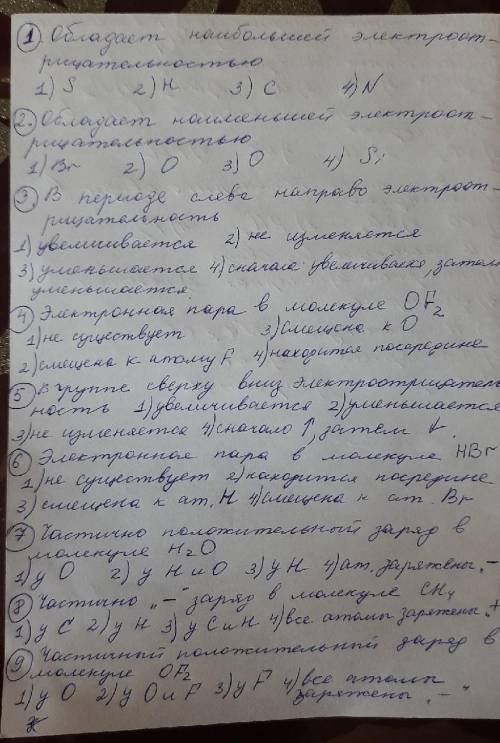 1. Обладает наибольшей электроот-
рицательностью
1) S 2) H 3) C 4) N
2. Обладает наименьшей электроот-
рицательностью
1) Br 2) O 3) O 4) Si
3. В периоде слева направо электроот-
рицательность
1) увеличивается 2) не изменяется
3) уменьшается 4) сначала увеличивается, затем
уменьшается
4 Электронная пара в молекуле OF2
1) не существует 3) смещена к O
2) смещена к атому F 4) находится посередине
5 В группе сверху вниз электроотрицатель
ность 1) увеличивается 2) уменьшается
3) не изменяется 4) сначало ↑, затем ↓
6 Электронная пара в молекуле HBr
1) не существует 2) находится посредине
3) смещена к ат. H 4) смещена к ат. Br
7 Частично положительный заряд в
молекуле H2O
1) у O 2) у H и O 3) у H 4) ат. заряжены „–
8 Частично „–" заряд в молекуле CH4
1) у C 2) у H 3) у C и H 4) все атомы заряжены „+
9 Частичный положительный заряд в
молекуле OF2
1) у O 2) у O и F 3) у F 4) все атомы
заряжены „–"